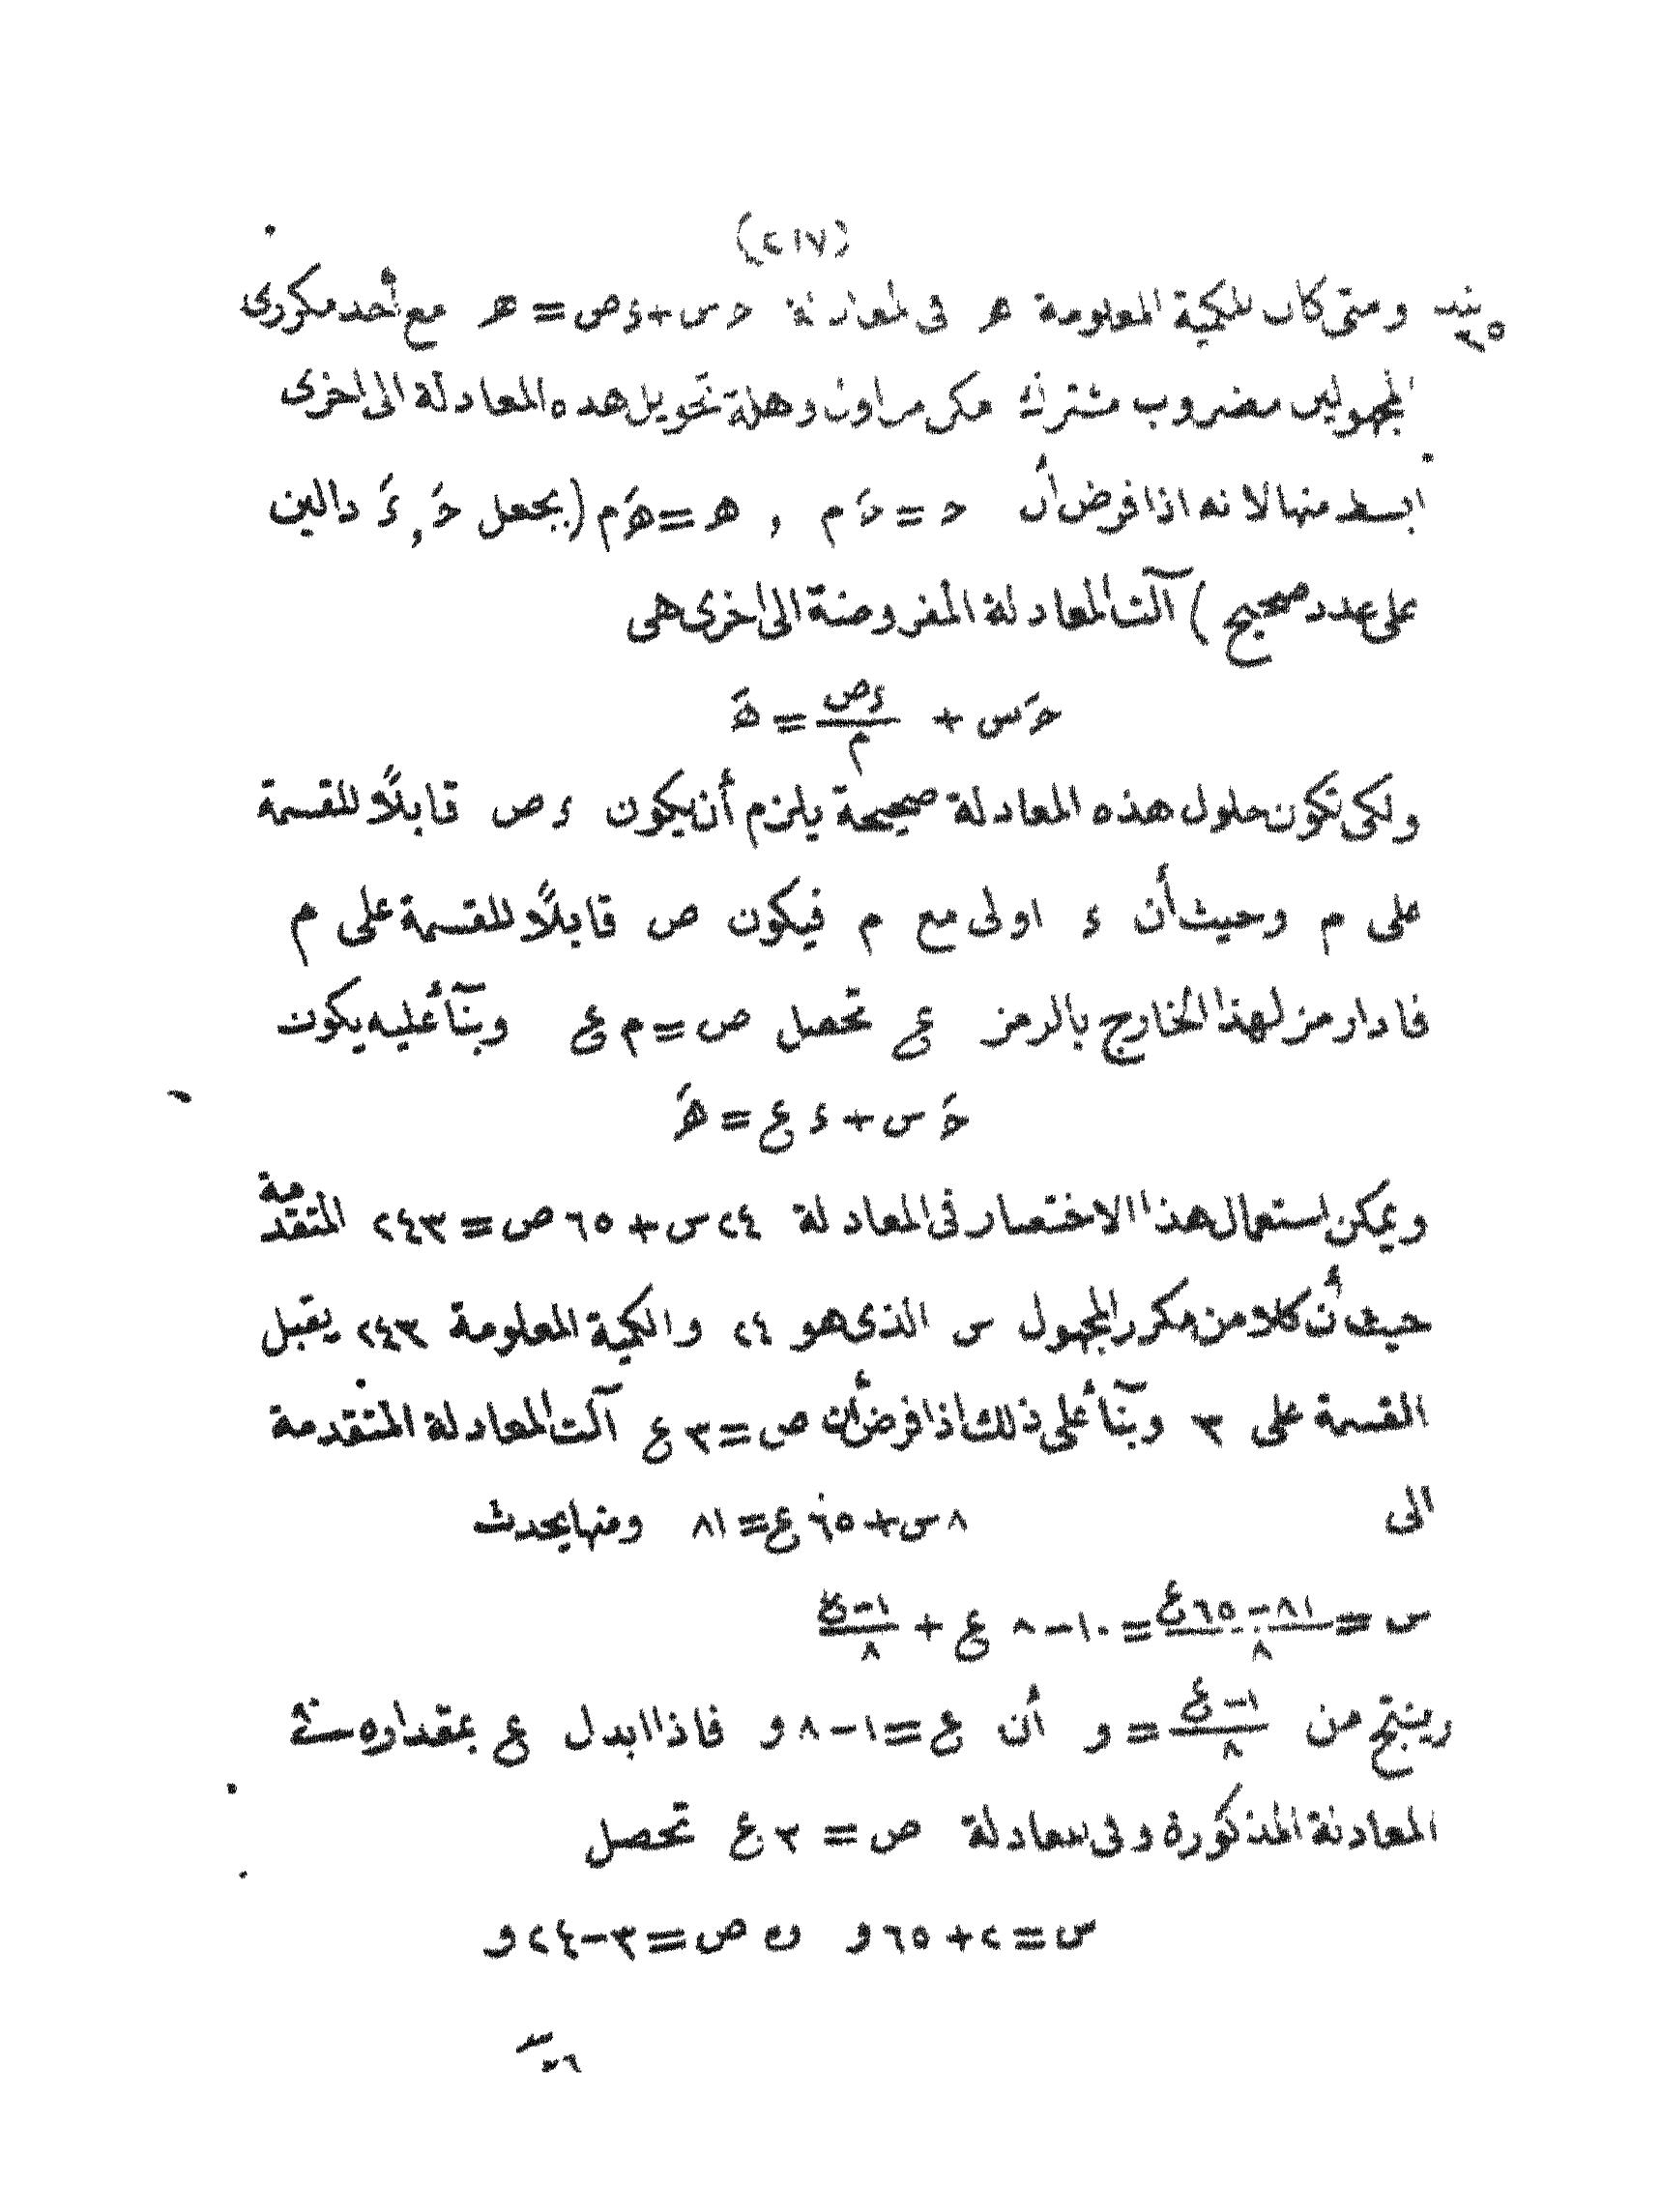 (٢١٧)
بند ٢٥ ومتى كان للكمية المعلومة ھ فى المعادلة حـ س + ء ص = ھ مع أحد مكررى
المجهولين مضروب مشترك مكن من اول وهلة تحويل هذه المعادلة الى اخرى
ابسط منها لانه اذا فرض أن حـ = حـَ م , ھ = ھَ م (بجعل حـَ , ءَ دالين
على عدد صحيح) آلت المعادلة المفروضة الى اخرى هى
حـَ س + ء ص / م = ھَ
ولكى تكون حلول هذه المعادلة صحيحة يلزم أن يكون ء ص قابلًا للقسمة
على م وحيث أن ء اولى مع م فيكون ص قابلًا للقسمة على م
فاذا رمز لهذا الخارج بالرمز ع تحصل ص = م ع وبنآأ عليه يكون
حـَ س + ء ع = ھَ
ويمكن استعمال هذا الاختصار فى المعادلة ٢٤ س + ٦٥ ص = ٢٤٣ المتقدمة
حيث أن كلا من مكرر المجهول س الذى هو ٢٤ والكمية المعلومة ٢٤٣ يقبل
القسمة على ٣ وبنآأ على ذلك اذا فرض أن ص = ٣ ع آلت المعادلة المتقدمة
الى ٨ س + ٦٥ ع = ٨١ ومنها يحدث
س = ٨١ - ٦٥ ع / ٨ = ١٠ - ٨ ع + ١ - ع / ٨
وينتج من ١ - ع / ٨ = و أن ع = ١ - ٨ و فاذا ابدل ع بمقداره فى
المعادلة المذكورة وفى المعادلة ص = ٣ ع تحصل
س = ٢ + ٦٥ و , ص = ٣ - ٢٤ و